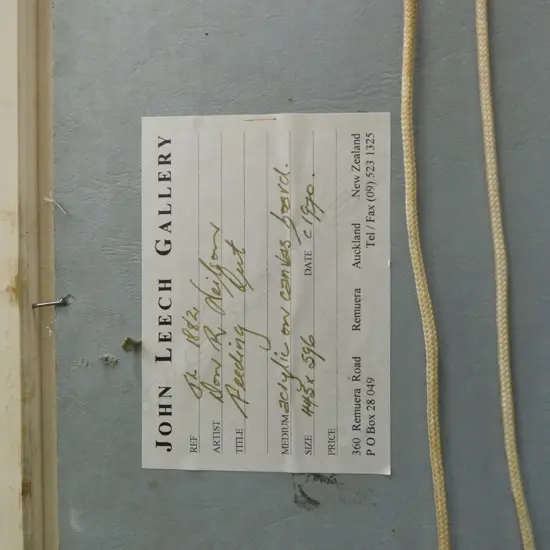 JOHN LEECH GALLERY
REF 1882
ARTIST Don R. Neilson
TITLE Feeding Out
MEDIUM acrylic on canvas board.
SIZE 445 x 596 DATE c 1970.
PRICE
360 Remuera Road Remuera Auckland New Zealand
P O Box 28 049 Tel / Fax (09) 523 1325